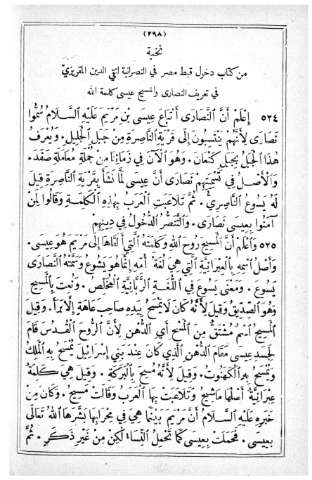 (٢٩٨)
نخبة
من كتاب دخول قبط مصر في النصرانية لتقي الدين المقريزي
في تعريف النصارى والمسيح عيسى كلمة الله
٥٢٤ إِعْلَمْ أَنَّ ٱلنَّصَارَى أَتْبَاعَ عِيسَى بْنِ مَرْيَمَ عَلَيْهِ ٱلسَّلَامُ سُمُّوا
نَصَارَى لِأَنَّهُمْ يَنْتَسِبُونَ إِلَى قَرْيَةِ ٱلنَّاصِرَةِ مِنْ جَبَلِ ٱلْجَلِيلِ. وَيُعْرَفُ
هٰذَا ٱلْجَبَلُ بِجَبَلِ كَنْعَانَ. وَهُوَ ٱلْآنَ فِي زَمَانِنَا مِنْ جُمْلَةِ مُعَامَلَةِ صَفَدَ.
وَٱلْأَصْلُ فِي تَسْمِيَتِهِمْ نَصَارَى أَنَّ عِيسَى لَمَّا نَشَأَ بِقَرْيَةِ ٱلنَّاصِرَةِ قِيلَ
لَهُ يَسُوعُ ٱلنَّاصِرِيُّ. ثُمَّ تَلَاعَبَتِ ٱلْعَرَبُ بِهٰذِهِ ٱلْكَلِمَةِ وَقَالُوا لِمَنْ
آمَنُوا بِعِيسَى نَصَارَى. وَٱلتَّنَصُّرُ ٱلدُّخُولُ فِي دِينِهِمْ
٥٢٥ وَٱعْلَمْ أَنَّ ٱلْمَسِيحَ رُوحَ ٱللهِ وَكَلِمَتَهُ ٱلَّتِي أَلْقَاهَا إِلَى مَرْيَمَ هُوَ عِيسَى.
وَأَصْلُ ٱسْمِهِ بِٱلْعِبْرَانِيَّةِ ٱلَّتِي هِيَ لُغَةُ أُمِّهِ إِنَّمَا هُوَ يَشُوعُ وَسَمَّتْهُ ٱلنَّصَارَى
يَسُوعَ. وَمَعْنَى يَسُوعَ فِي ٱللُّغَةِ ٱلسُّرْيَانِيَّةِ ٱلْمُخَلِّصُ. وَنُعِتَ بِٱلْمَسِيحِ
وَهُوَ ٱلصِّدِّيقُ وَقِيلَ لِأَنَّهُ كَانَ لَا يَمْسَحُ بِيَدِهِ صَاحِبَ عَاهَةٍ إِلَّا بَرَأَ. وَقِيلَ
ٱلْمَسِيحُ ٱسْمٌ مُشْتَقٌّ مِنَ ٱلْمَسْحِ أَيِ ٱلدُّهْنِ لِأَنَّ ٱلرُّوحَ ٱلْقُدُسَ قَامَ
لِجَسَدِ عِيسَى مَقَامَ ٱلدُّهْنِ ٱلَّذِي كَانَ عِنْدَ بَنِي إِسْرَائِيلَ يُمْسَحُ بِهِ ٱلْمَلِكُ
وَيُمْسَحُ بِهِ ٱلْكَهَنُوتُ. وَقِيلَ لِأَنَّهُ مُسِحَ بِٱلْبَرَكَةِ. وَقِيلَ هِيَ كَلِمَةٌ
عِبْرَانِيَّةٌ أَصْلُهَا مَاشِيحُ وَتَلَاعَبَتْ بِهَا ٱلْعَرَبُ وَقَالَتْ مَسِيحٌ. وَكَانَ مِنْ
خَبَرِهِ عَلَيْهِ ٱلسَّلَامُ أَنَّ مَرْيَمَ بَيْنَمَا هِيَ فِي مِحْرَابِهَا بَشَّرَهَا ٱللهُ تَعَالَى
بِعِيسَى. فَحَمَلَتْ بِعِيسَى كَمَا تَحْمِلُ ٱلنِّسَاءُ لٰكِنْ مِنْ غَيْرِ ذَكَرٍ. ثُمَّ